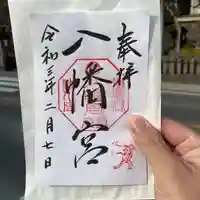 奉拝
八幡宮
令和三年二月七日